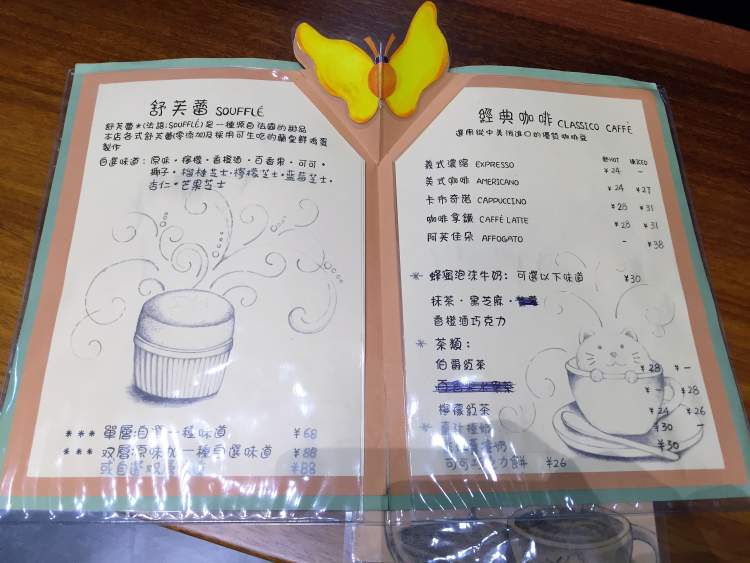 舒芙蕾 SOUFFLÉ
舒芙蕾*(法語:SOUFFLÉ)是一種源自法國的甜品
本店各式舒芙蕾零添加及採用可生吃的蘭皇鮮鷄蛋
製作
自選味道：原味·檸檬·香橙酒·百香果·可可·
椰子·榴槤芝士·檸檬芝士·藍莓芝士·
杏仁·芒果芝士
*** 單層:自選一種味道 ¥68
*** 双層:原味加一種自選味道 ¥88
或自選双 ¥88
經典咖啡 CLASSICO CAFFÈ
選用從中美洲進口的優質咖啡豆
熱HOT 凍ICED
義式濃縮 EXPRESSO ¥24 -
美式咖啡 AMERICANO ¥24 ¥27
卡布奇諾 CAPPUCCINO ¥28 ¥31
咖啡拿鐵 CAFFÈ LATTE ¥28 ¥31
阿芙佳朵 AFFOGATO - ¥38
* 蜂蜜泡沫牛奶：可選以下味道 ¥30
抹茶·黑芝麻·
香橙酒巧克力
* 茶類：
伯爵紅茶 ¥28 ¥-
¥- ¥28
檸檬紅茶 ¥24 ¥26
* ¥30 -
¥30
¥26